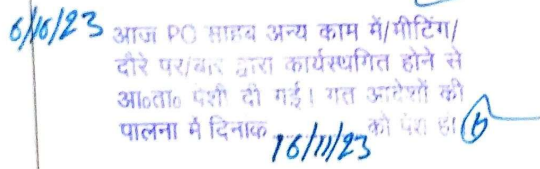 6/10/23 आज PO साहब अन्य काम में/मीटिंग/
दौरे पर/बार द्वारा कार्यस्थगित होने से
आ०ता० पेशी दी गई। गत आदेशों की
पालना में दिनाक 16/11/23 को पेश हो